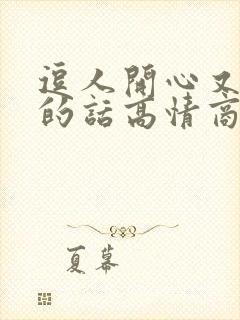 逗人開心又
的話高情商
夏幕